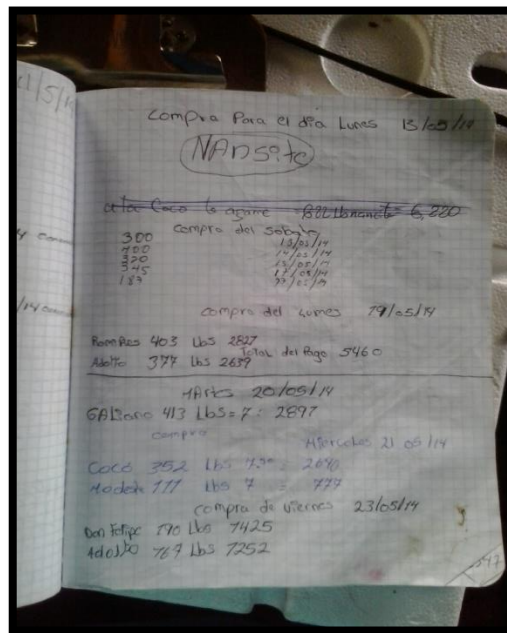 Compra Para el dia Lunes 13/05/14
NANSite
a la Coco le agarre
compra del Sobato
300 13/05/14
400 14/05/14
320 15/05/14
345 17/05/14
187
compra del Lunes 19/05/14
403 Lbs 2827
Adolfo 377 Lbs 2639 Total del Pago 5460
MArtes 20/05/14
GALBano 413 LbS = 7 : 2897
compra
Miercoles 21 05/14
Coco 352 Lbs 2640
Modesta 111 Lbs 7 = 777
compra de viernes 23/05/14
Don Felipe 190 Lbs 1425
Adolfo 167 Lbs 1252